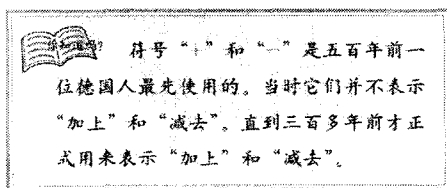 你知道吗? 符号“+”和“-”是五百年前一
位德国人最先使用的。当时它们并不表示
“加上”和“减去”。直到三百多年前才正
式用来表示“加上”和“减去”。